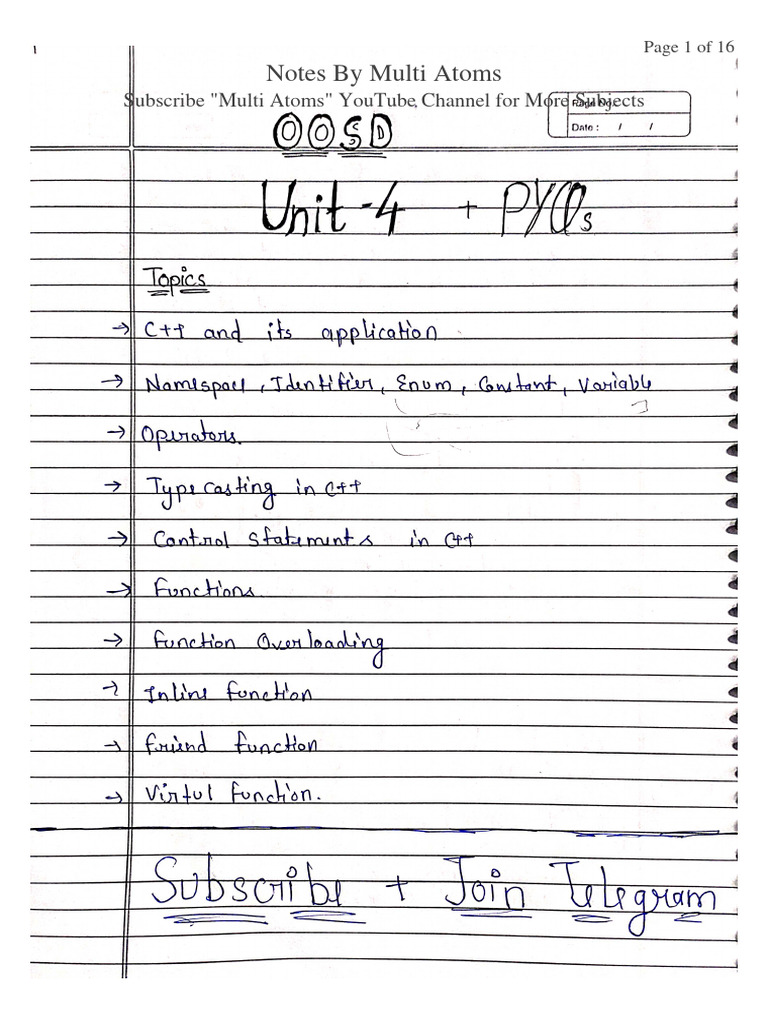 Page 1 of 16
Notes By Multi Atoms
Subscribe "Multi Atoms" YouTube Channel for More Subjects
Page No.
Date : / /
OOSD
Unit-4 + PYQs
Topics
→ C++ and its application
→ Namespace, Identifier, Enum, Constant, Variable
→ Operators.
→ Type casting in C++
→ Control Statements in C++
→ Functions
→ Function Overloading
→ Inline function
→ friend function
→ Virtul function.
Subscribe + Join Telegram